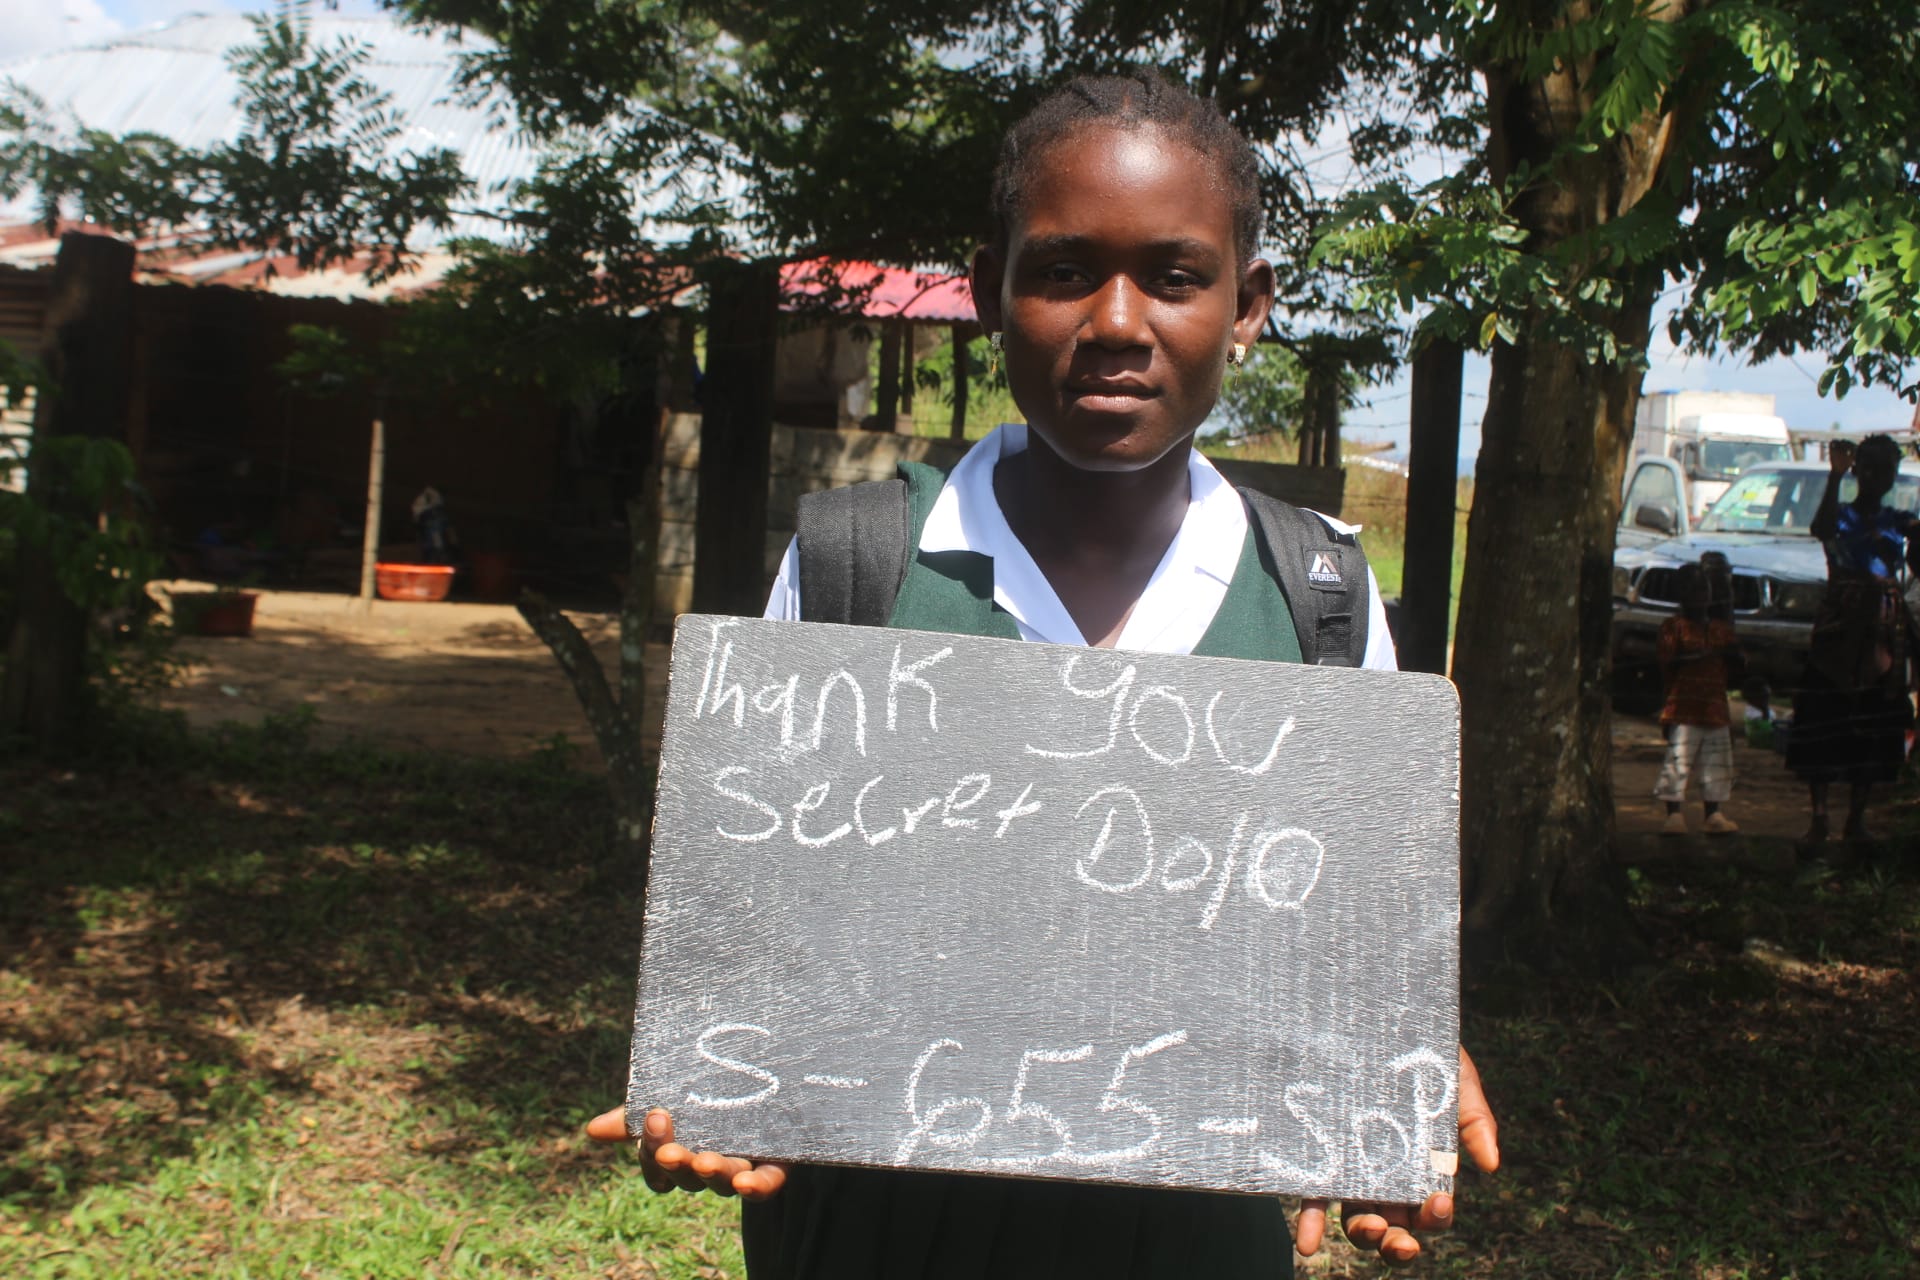 EVEREST
Thank you
Secret Dolo
S-655-SOP